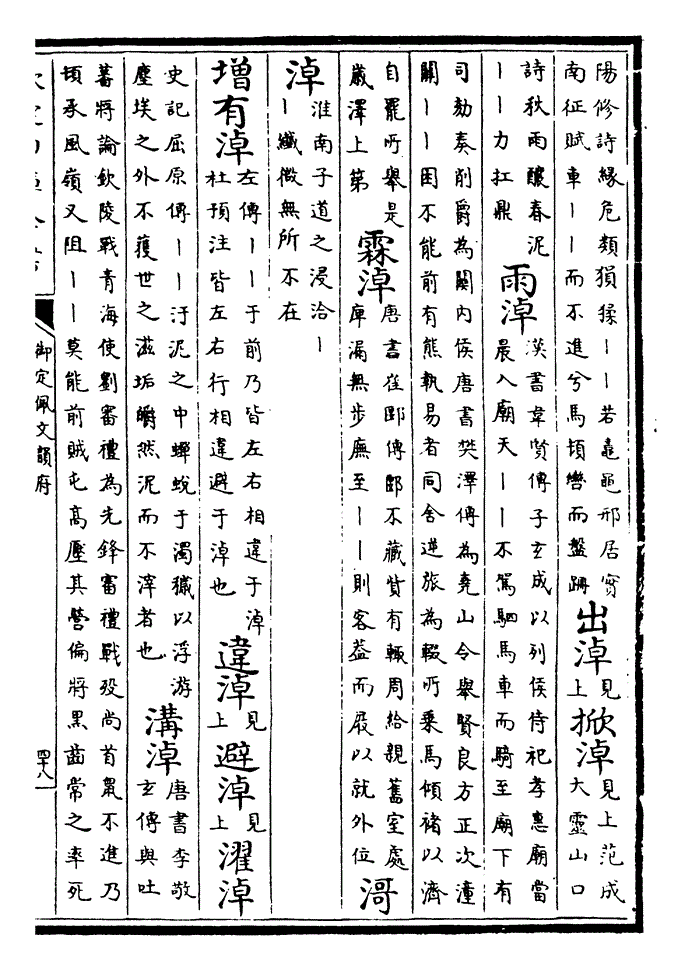 陽修詩緣危類猿猱丨丨若黿黽邢居實
南征賦車丨丨而不進兮馬頓轡而盤跚
出淖
見上
掀淖
見上范成
大靈山口
詩秋雨釀春泥
丨丨力扛鼎
雨淖
漢書韋賢傳子玄成以列侯侍祀孝惠廟當
晨入廟天丨丨不駕駟馬車而騎至廟下有
司劾奏削爵為關內侯唐書樊澤傳為堯山令舉賢良方正次潼
關丨丨困不能前有熊執易者同舍逆旅為輟所乘馬傾褚以濟
自罷所舉是
歲澤上第
霖淖
唐書崔郾傳郾不藏貲有輒周給親舊室處
庳漏無步廡至丨丨則客葢而屐以就外位
滒
淖
淮南子道之浸洽丨
丨纖微無所不在
增有淖
左傳丨丨于前乃皆左右相違于淖
杜預注皆左右行相違避于淖也
違淖
見上
避淖
見上
濯淖
史記屈原傳丨丨汙泥之中蟬蛻于濁穢以浮游
塵埃之外不獲世之滋垢皭然泥而不滓者也
溝淖
唐書李敬
玄傳與吐
蕃將論欽陵戰青海使劉審禮為先鋒審禮戰歿尚首鼠不進乃
頓承風嶺又阻丨丨莫能前賊屯高壓其營偏將黑齒常之率死
御定佩文韻府
四十八